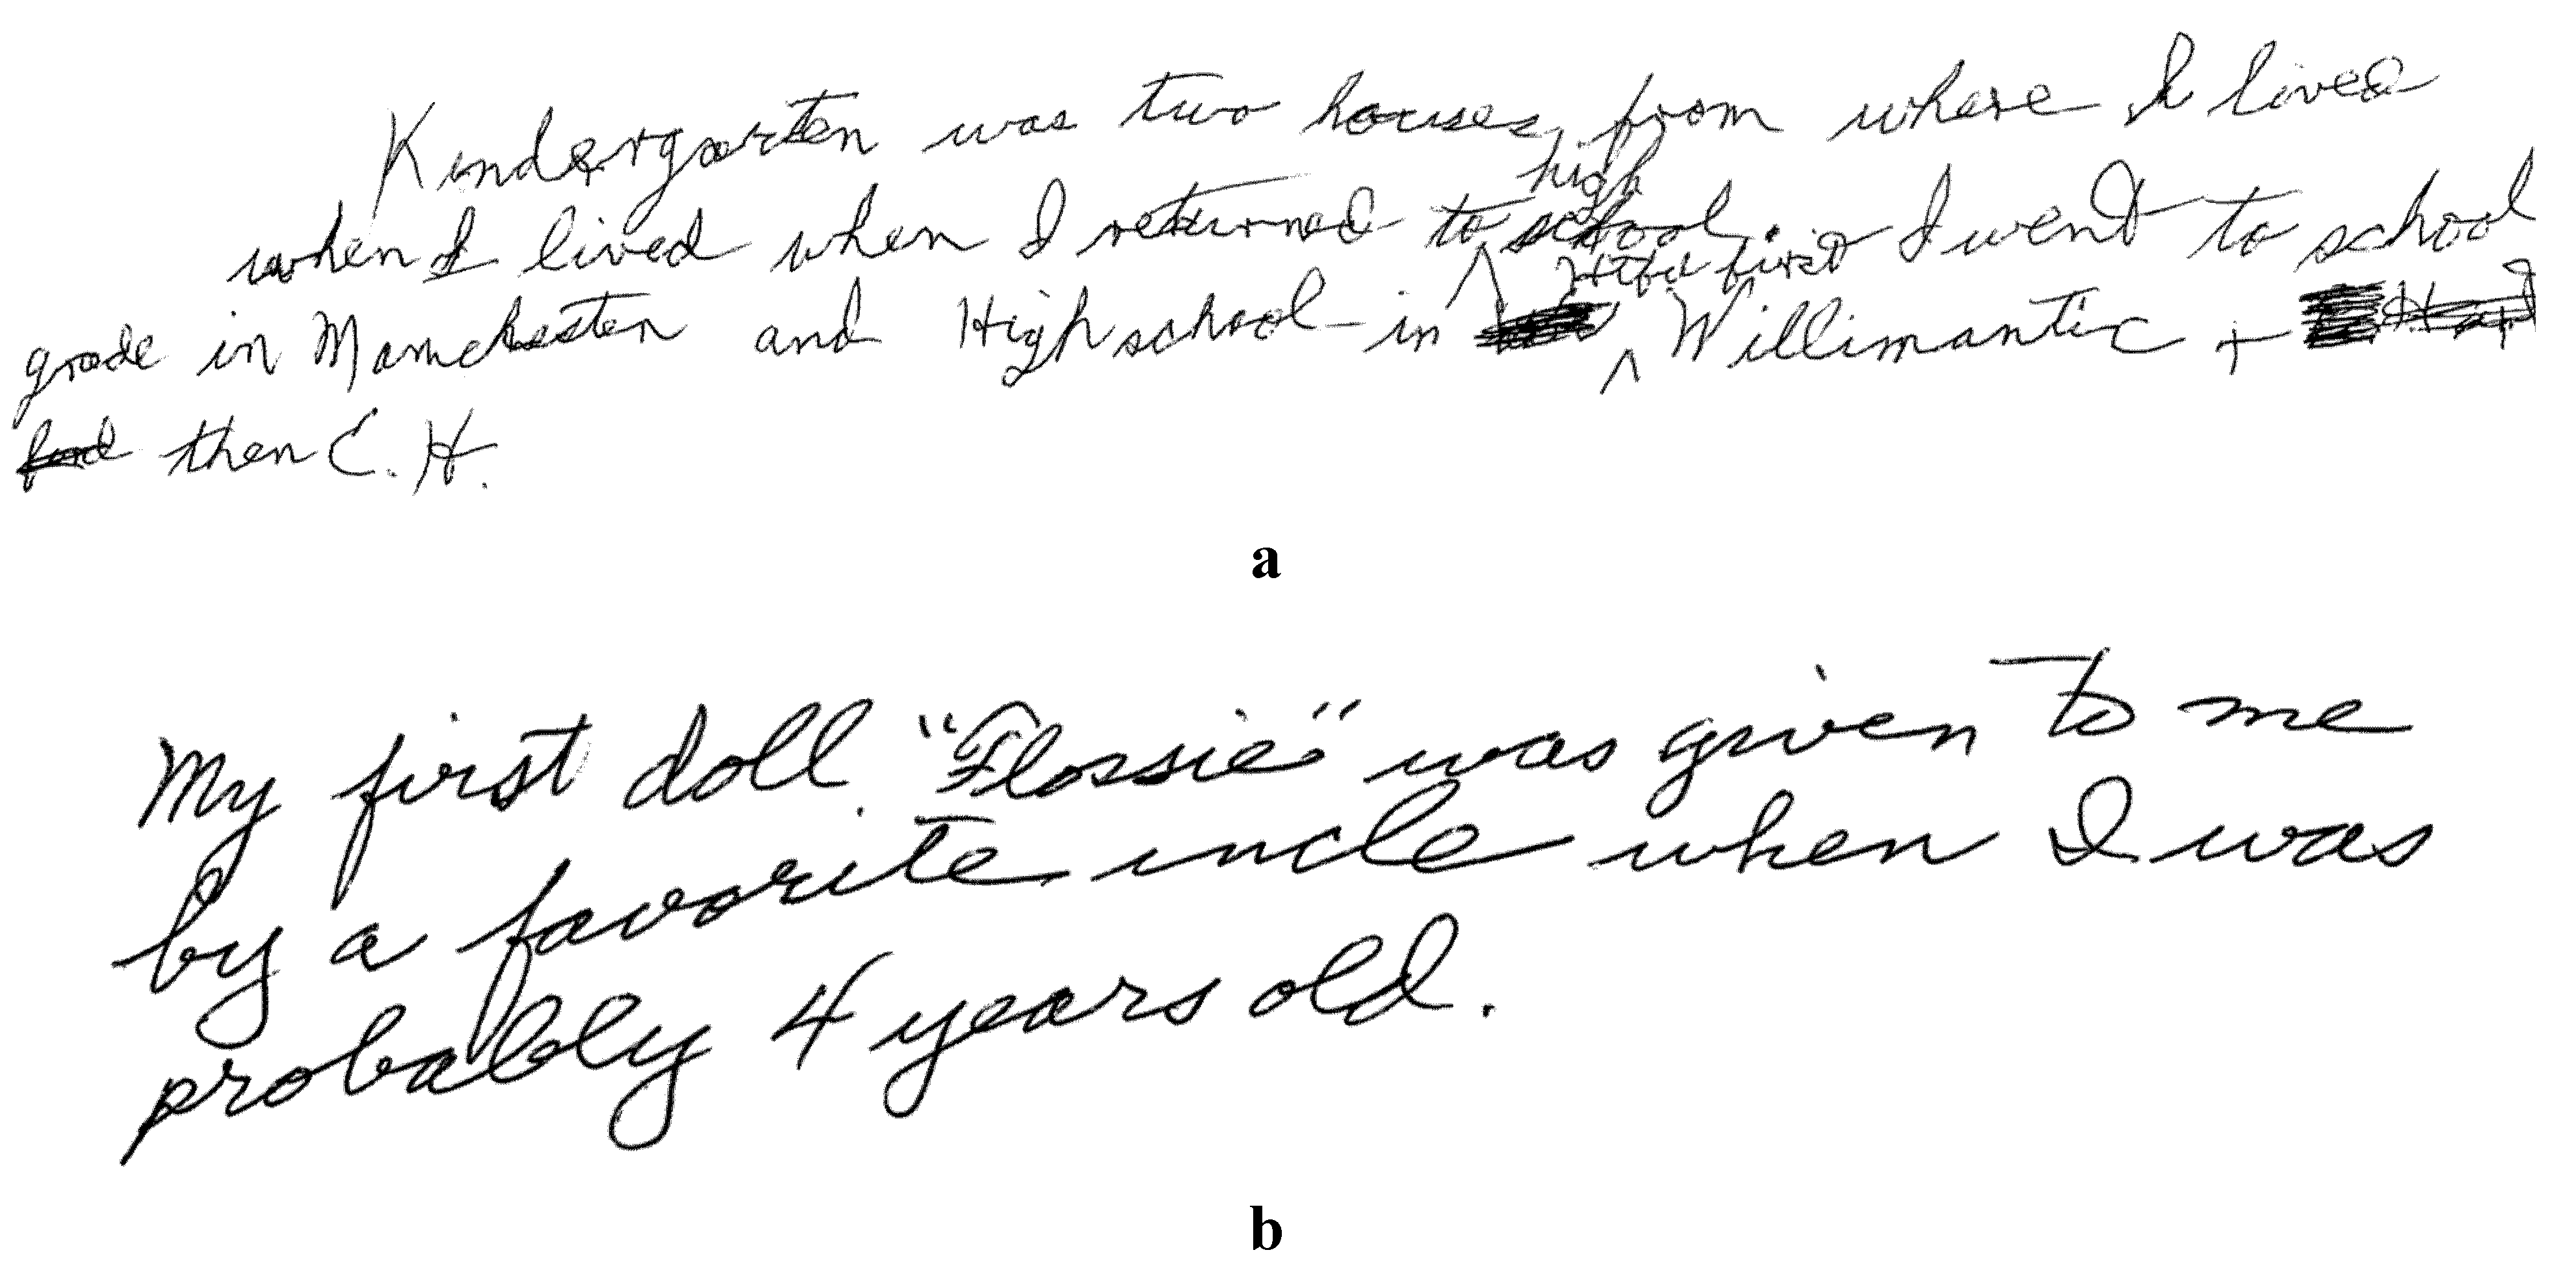 Kindergarten was two houses from where I lived
high
when I lived when I returned to school. I went to school
first
grade in Manchester and High school in Willimantic +
then E. H.
a
My first doll "Flossie" was given to me
by a favorite uncle when I was
probably 4 years old.
b